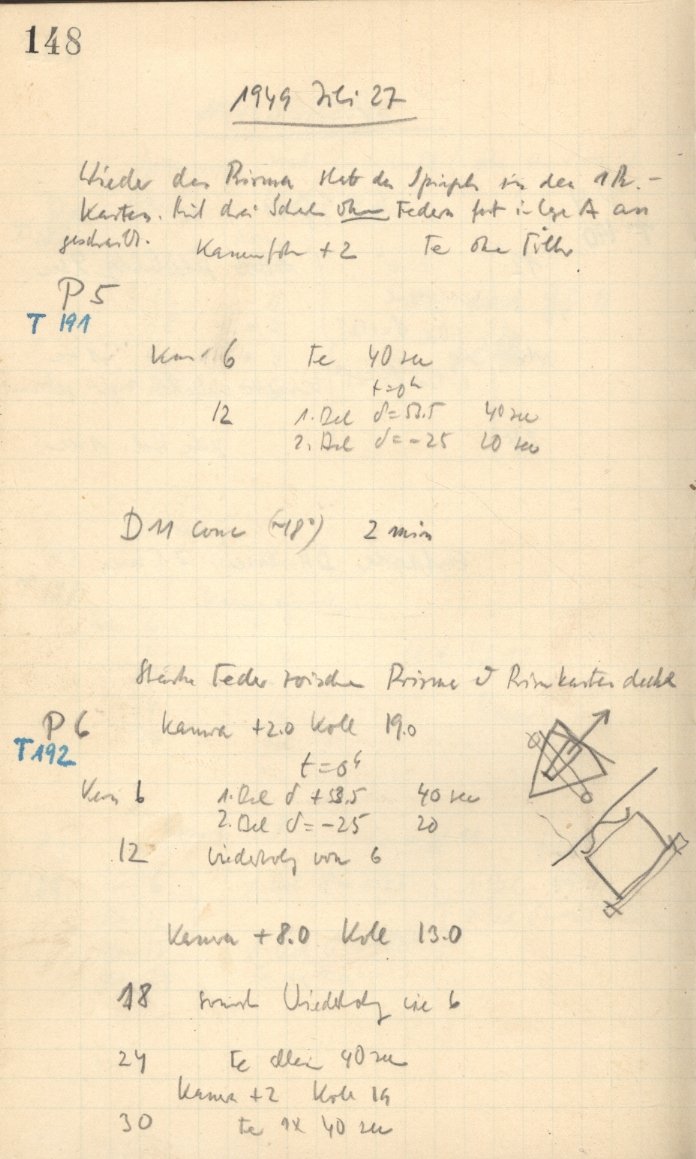 148
1949 Juli 27
Wieder das Prisma statt des Spiegels in den
Kasten. Mit drei ohne Federn fest in Lage A an
geschraubt. Kamera +2 Te ohne Filter
P5
T 191
6 Te 40 sec
t=0h
12 1. Bel δ=53.5 40 sec
2. Bel δ=-25 20 sec
D 11 conc (~18°) 2 min
Starke Feder zwischen Prisma Prismkastendeckel
P6 Kamera +2.0 Koll 19.0
T192
t=0h
6 1. Bel δ +53.5 40 sec
2. Bel δ=-25 20
12 Wiederholg von 6
Kamera +8.0 Koll 13.0
18 sonst Wiederholg wie 6
24 Te allein 40 sec
Kamera +2 Koll 19
30 Te 1x 40 sec